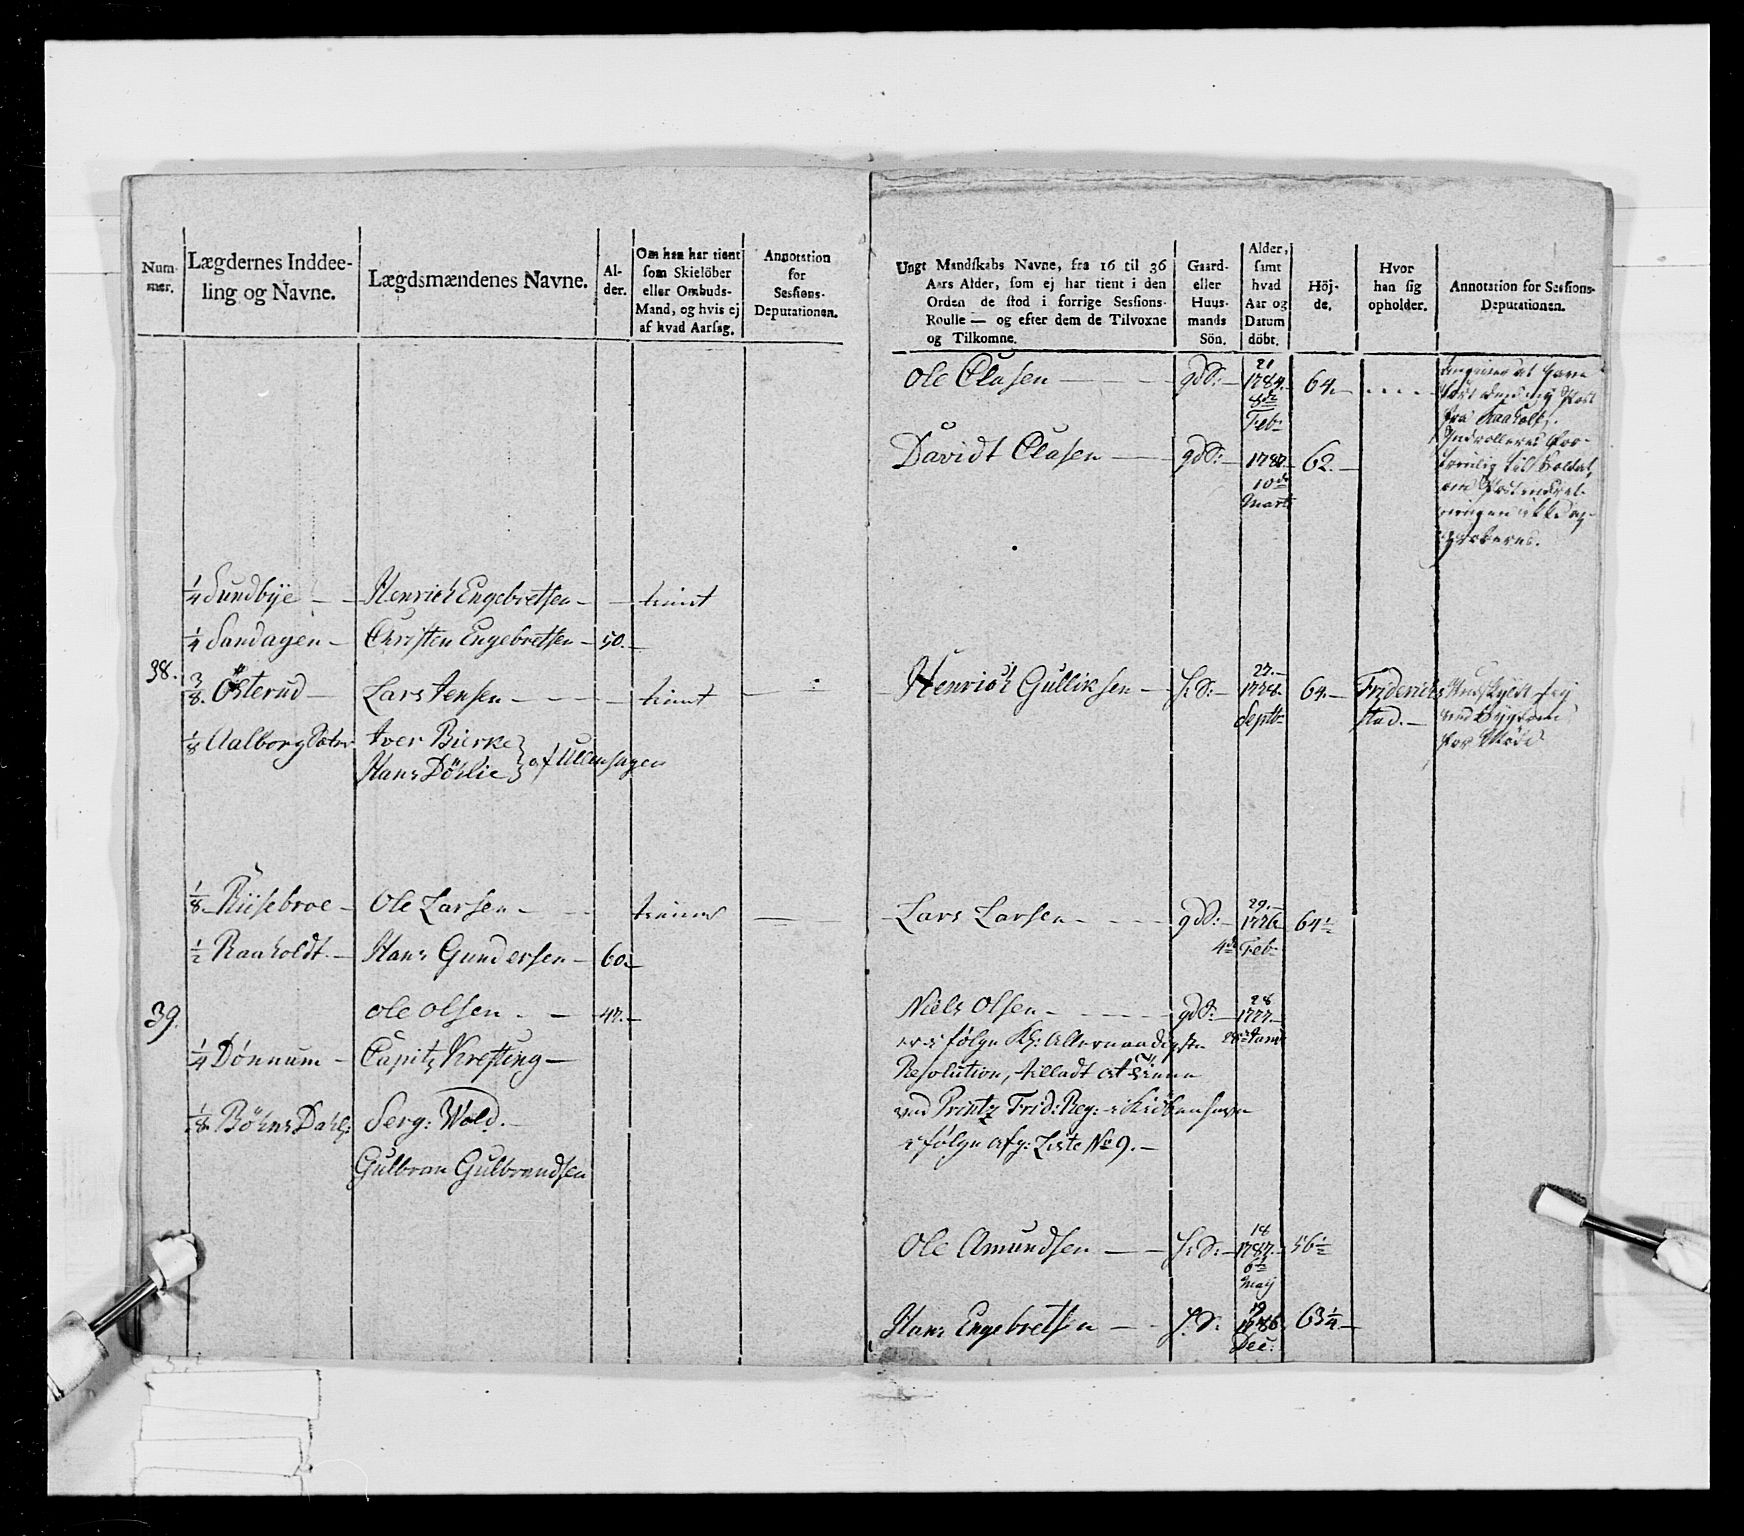 Num-
mer.
Lægdernes Inddee-
ling og Navne.
Lægdsmændenes Navne.
Al-
der.
Om han har tient
som Skielöber
eller Ombuds-
Mand, og hvis ej
af hvad Aarsag.
Annotation
for
Sessions-
Deputationen.
¼ Sundbye — Henrich Engebretsen — — tient
¼ Sandagen — Christen Engebretsen — 50. —
38. 3/8. Österud — Lars Jensen — — — — tient
1/8 Aalborg Iver Bierke
Hans Döhlie } af Ullensagen
1/8 Riisebroe — Ole Larsen — —
½ Raaholdt. — Hans Gundersen — 60. —
39. Ole Olsen — — 47. —
¼ Dönnum — Capit Kresting —
1/8 Böhns Dahl: Serg: Wold. —
Gulbran Gulbrandsen
Ungt Mandskabs Navne, fra 16 til 36
Aars Alder, som ej har tient i den
Orden de stod i forrige Sessions-
Roulle — og efter dem de Tilvoxne
og Tilkomne.
Gaard-
eller
Huus-
mands
Sön.
Alder,
samt
hvad
Aar og
Datum
döbt.
Höj-
de.
Hvor
han sig
opholder.
Annotation for Sessions-
Deputationen.
21
Ole Clasen — — — gdS: — 1784. 64. —
8de
Feb:
fra Raaholt
Davidt Clasen — — gdS: — 1787. 62. —
10de
Marti
til Soldat,
27. —
Henrich Gulliksen — h: S: — 1778. 64. — Friderichs
Septb stad. —
29. —
Lars Larsen — — — gdS: — 1776 64½
4de Feb:
28
Niels Olsen — — — — gdS: — 1777. —
fölge Kl: Allernaadigste
Resolution, tilladt at
ved Printz Frid: Reg: i Kiöbenhavn
ifölge afg: Liste No 9. —
18
Ole Amundsen — — h: S: — 1787. — 56½
6te
May
19
Hans Engebretsen — — h: S: 1786 63¼ —
Dec: